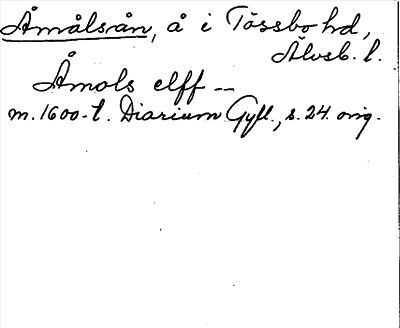 Åmålsån, å i Tössbo hd,
Älvsb. l.
Åmols elff --
m. 1600-t. Diarium Gyll., s. 24. orig.